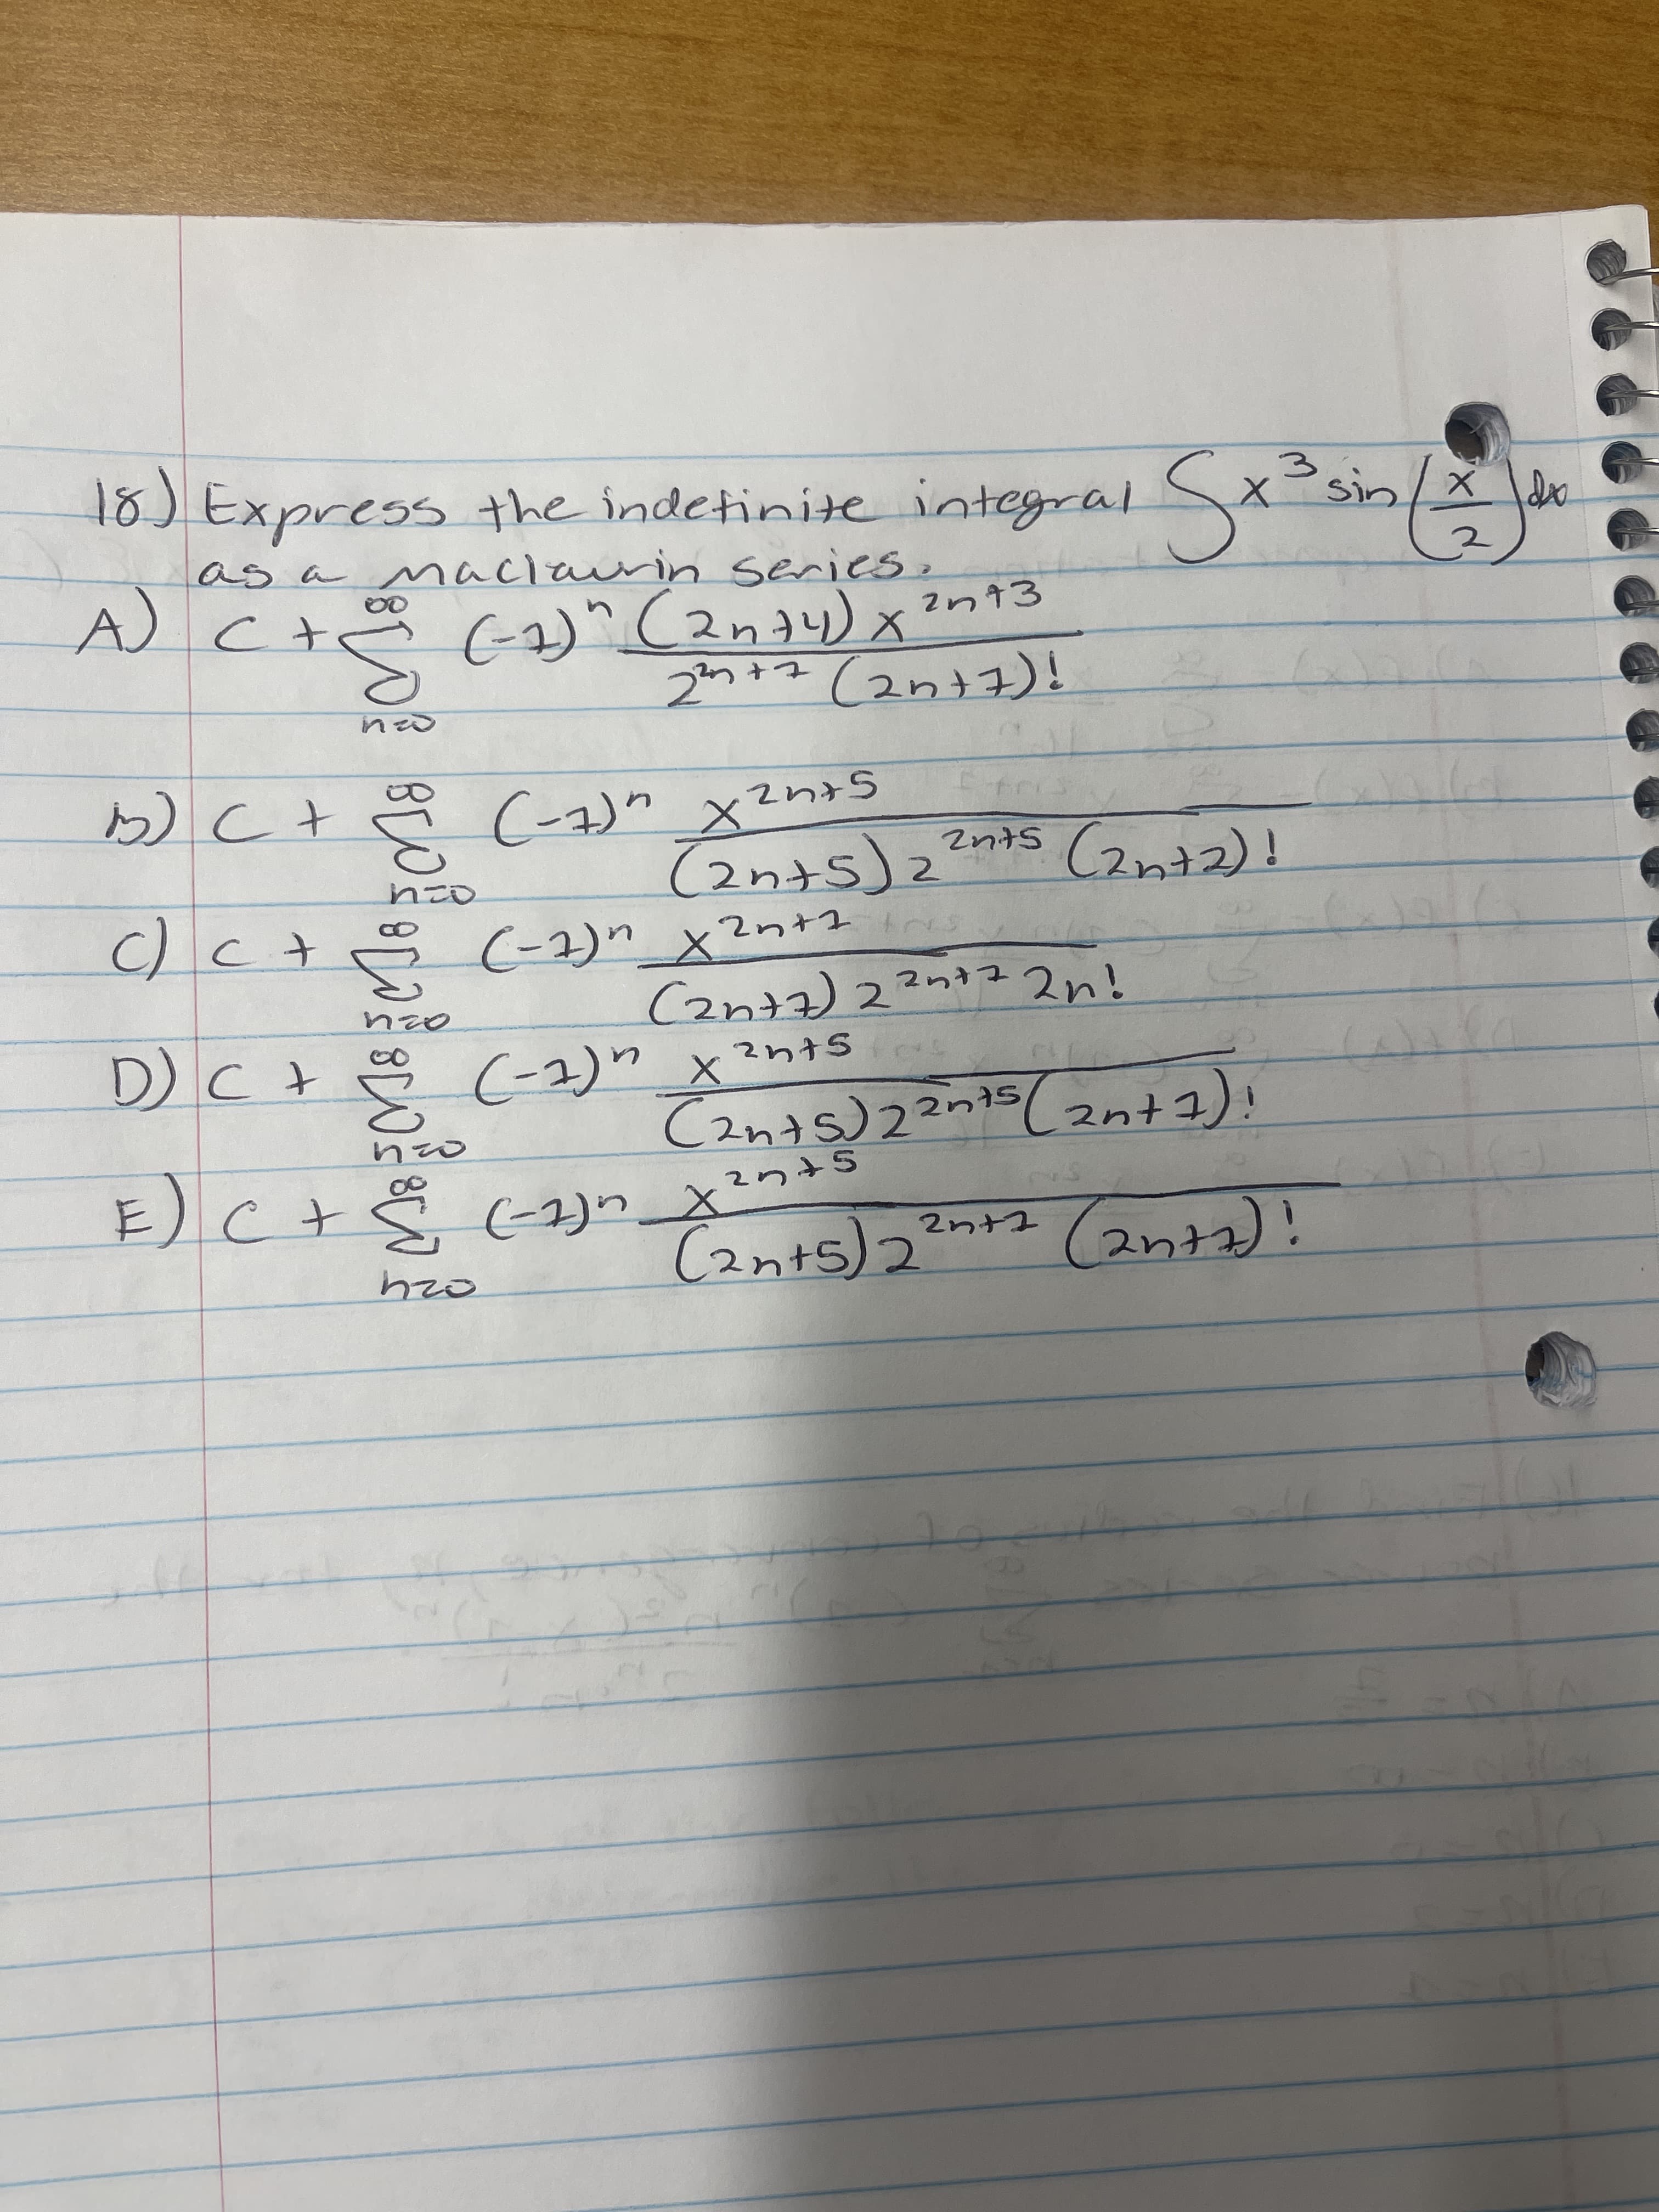 18) Express the indefinite integral ∫ x^3 sin(x/2) dx
as a Maclaurin series.
A) C + ∑_{n=0}^{∞} (-1)^n (2n+4) x^{2n+3} / 2^{2n+1} (2n+1)!
B) C + ∑_{n=0}^{∞} (-1)^n x^{2n+5} / (2n+5) 2^{2n+5} (2n+2)!
C) C + ∑_{n=0}^{∞} (-1)^n x^{2n+1} / (2n+1) 2^{2n+1} 2n!
D) C + ∑_{n=0}^{∞} (-1)^n x^{2n+5} / (2n+5) 2^{2n+5} (2n+1)!
E) C + ∑_{n=0}^{∞} (-1)^n x^{2n+5} / (2n+5) 2^{2n+1} (2n+1)!